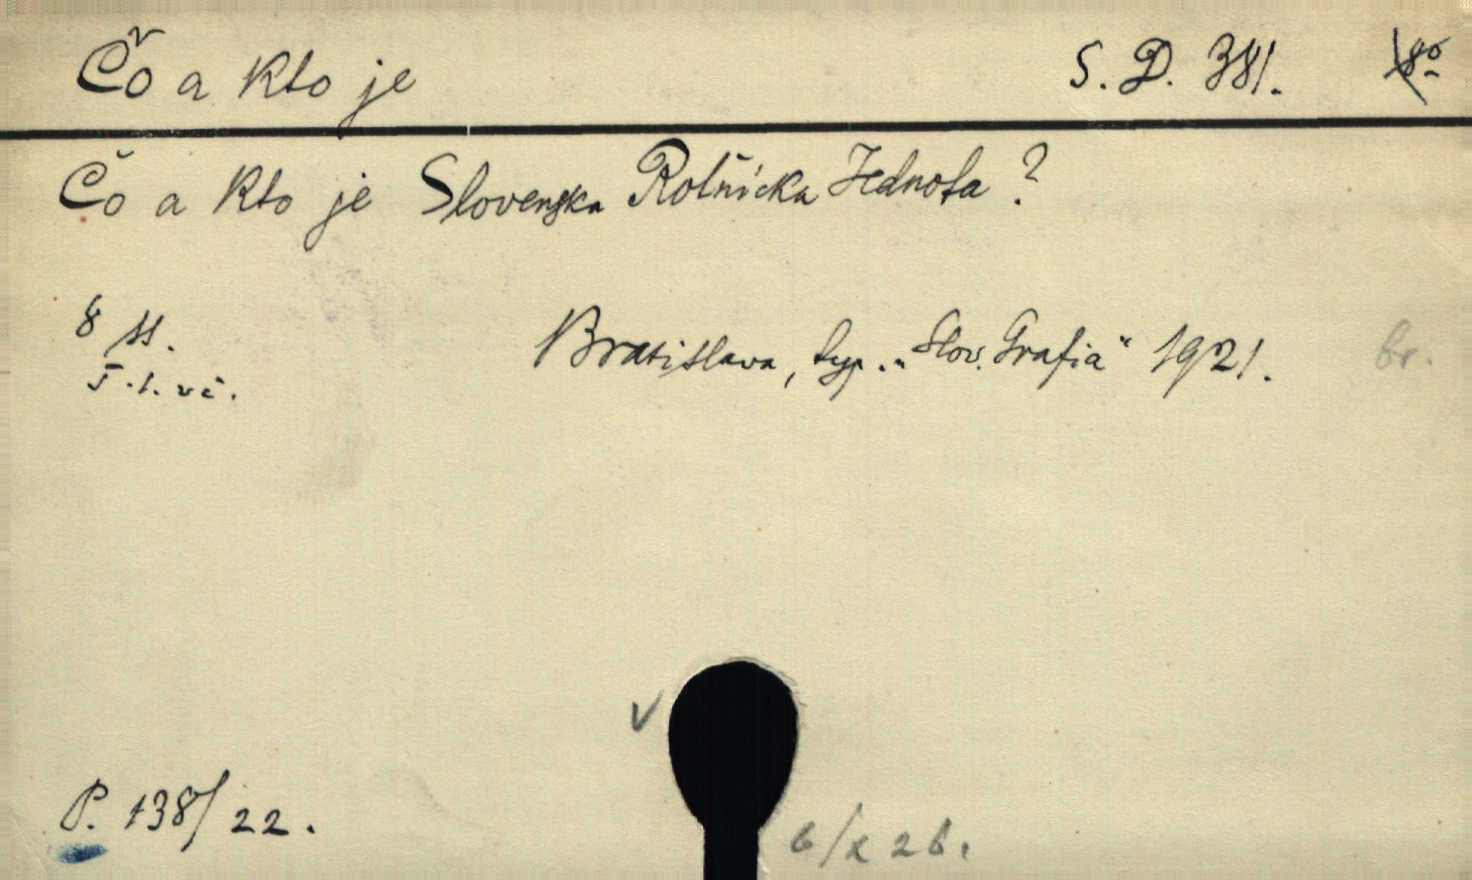 Čo a kto je S. D. 381. 8º
Čo a kto je Slovenska Rolnícka Jednota?
8 ss. Bratislava, typ. „Slov. Grafia" 1921. br.
T. t. vč.
V
P. 138/22.
6/X 26.